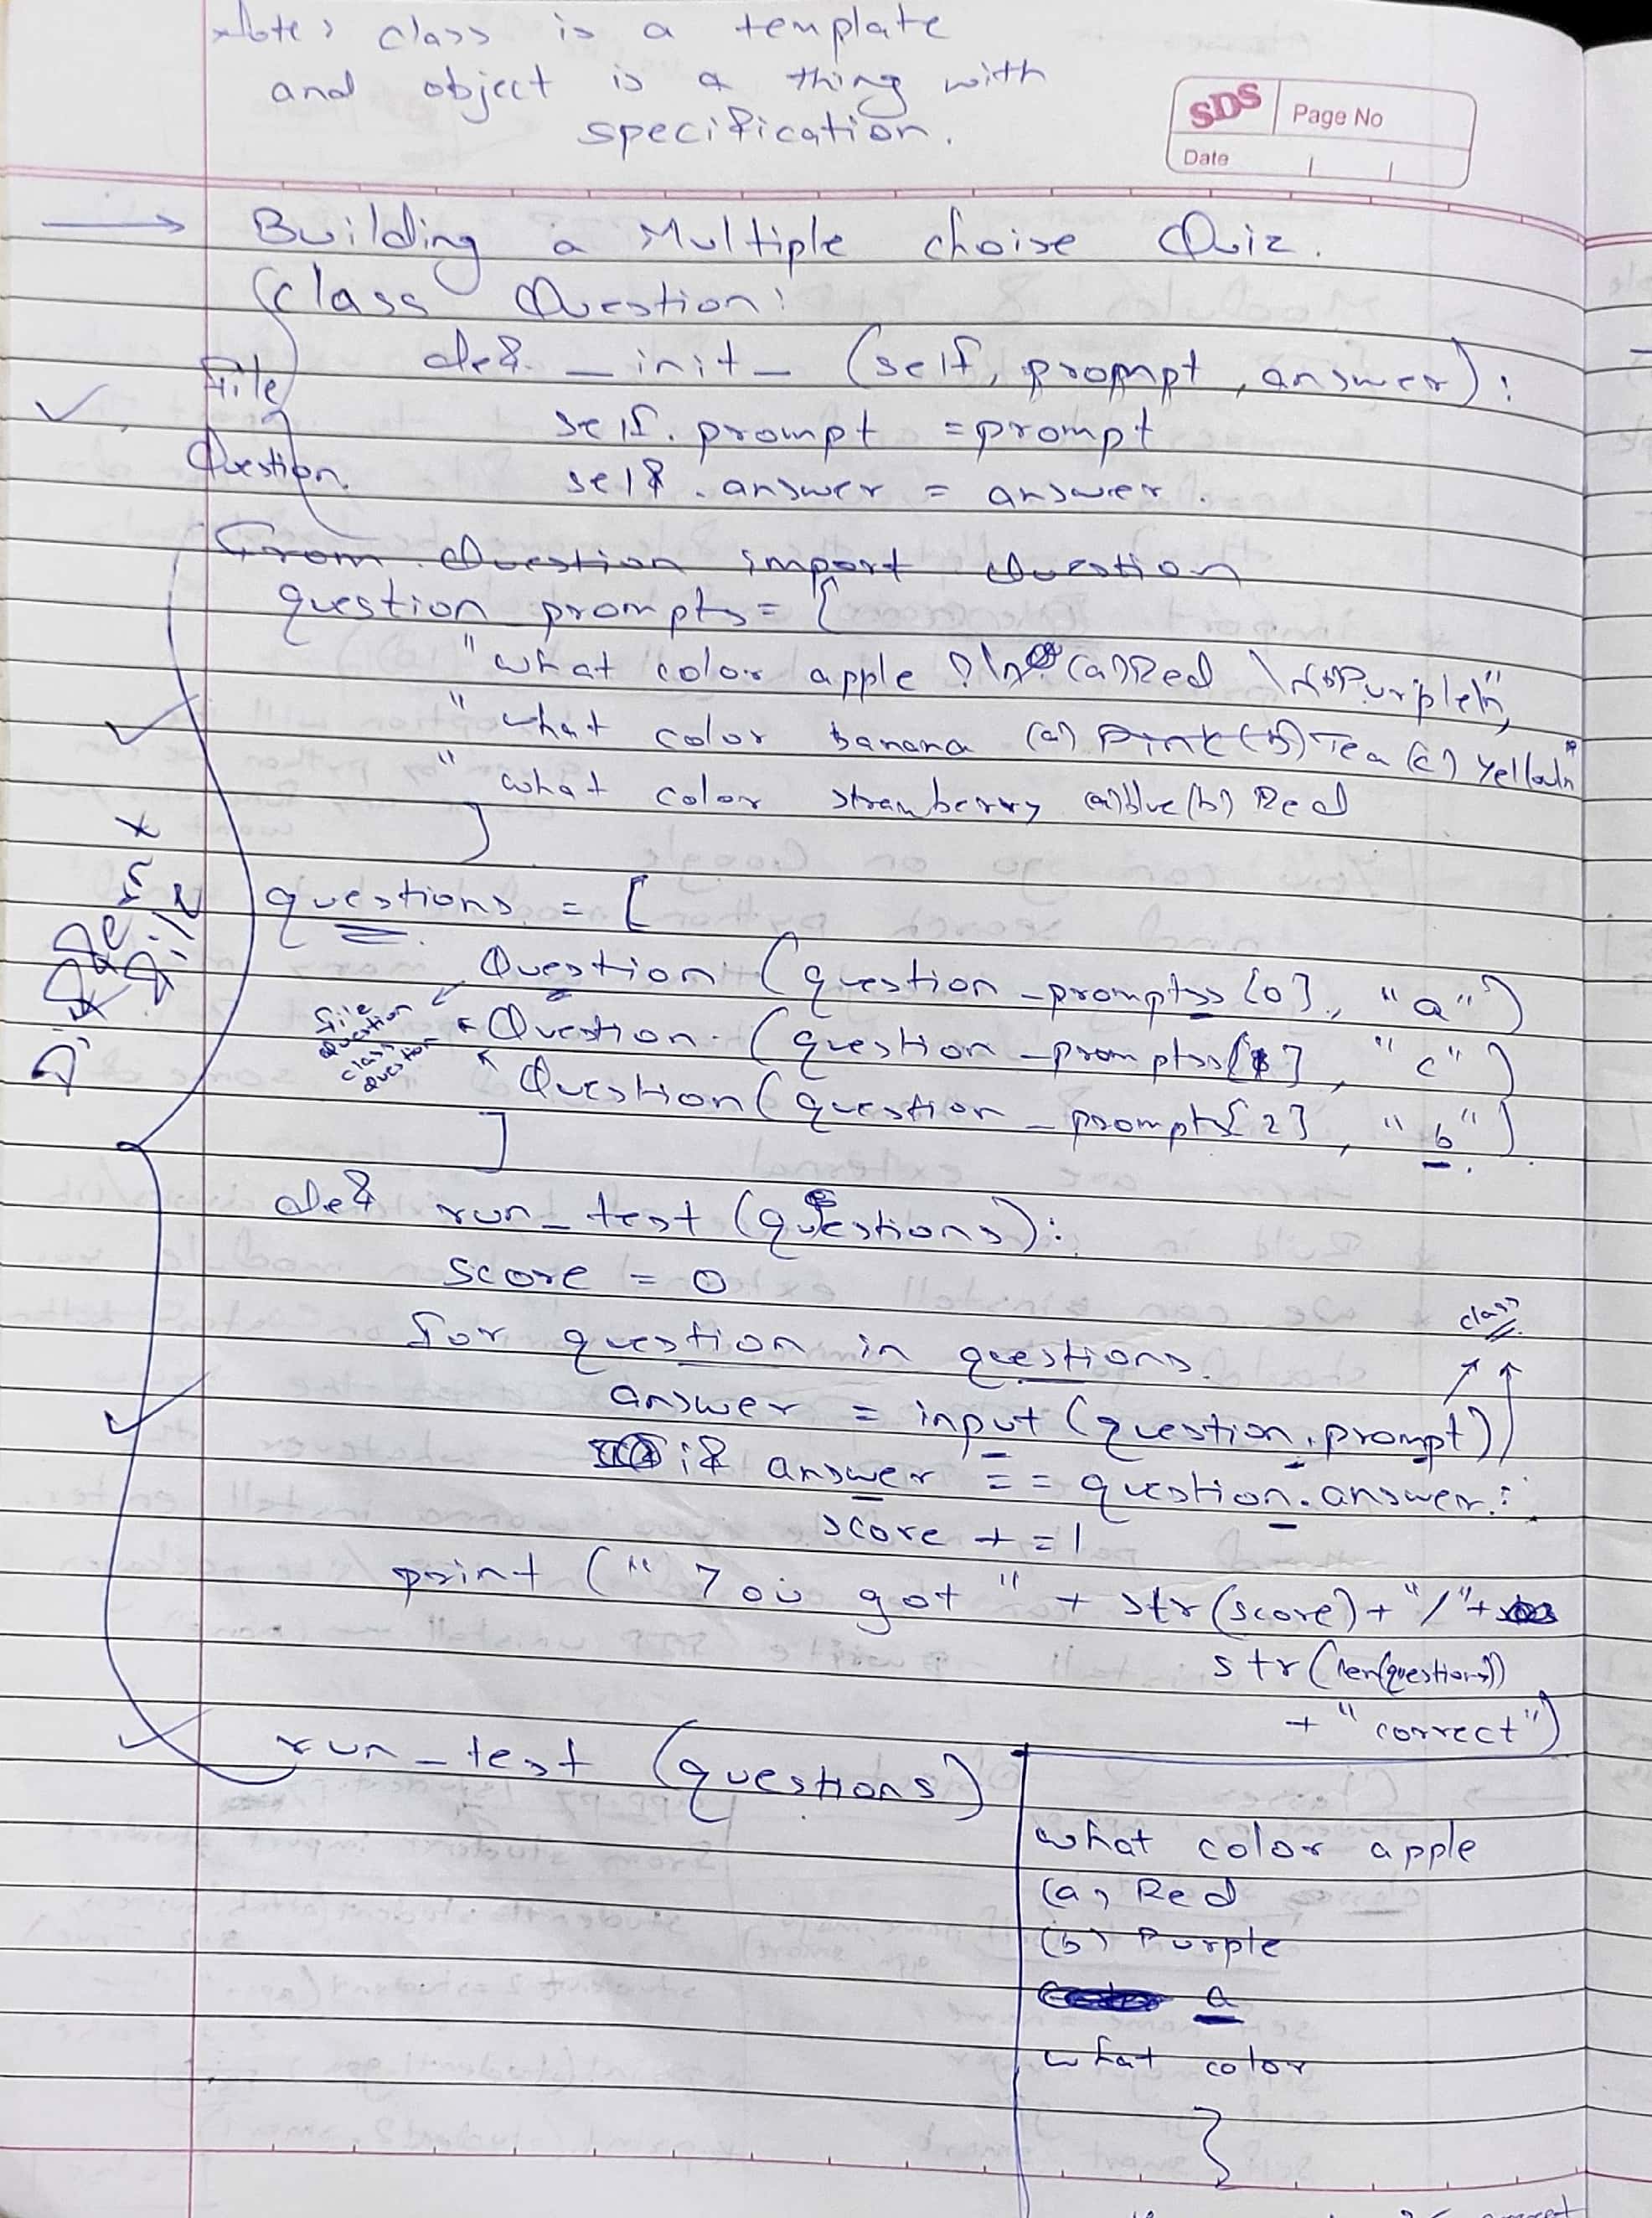 Note: class is a template
and object is a thing with
specification.
SDS
Page No
Date
Building a Multiple choise Quiz.
class Question:
def _init_ (self, prompt, answer):
File
self.prompt = prompt
Question.
self.answer = answer.
from Question import Question
question prompts = [
"what color apple ?\n (a) Red \n(b)Purple\n",
"what color banana (a) Pink (b) Tea (c) Yellow\n"
"what color strawberry (a)blue(b) Red
]
questions = [
Question (question_prompts[0], "a")
file
Question
class
Question
Question (question_prompts[1], "c")
Question (question_prompts[2], "b").
]
def run_test (questions):
score = 0
for question in questions.
class
answer = input (question.prompt)
if answer == question.answer:
score +=1
print ("You got" + str(score)+"/"+
str(len(questions))
+ "correct")
run_test (questions)
what color apple
(a) Red
(b) Purple
a
what color